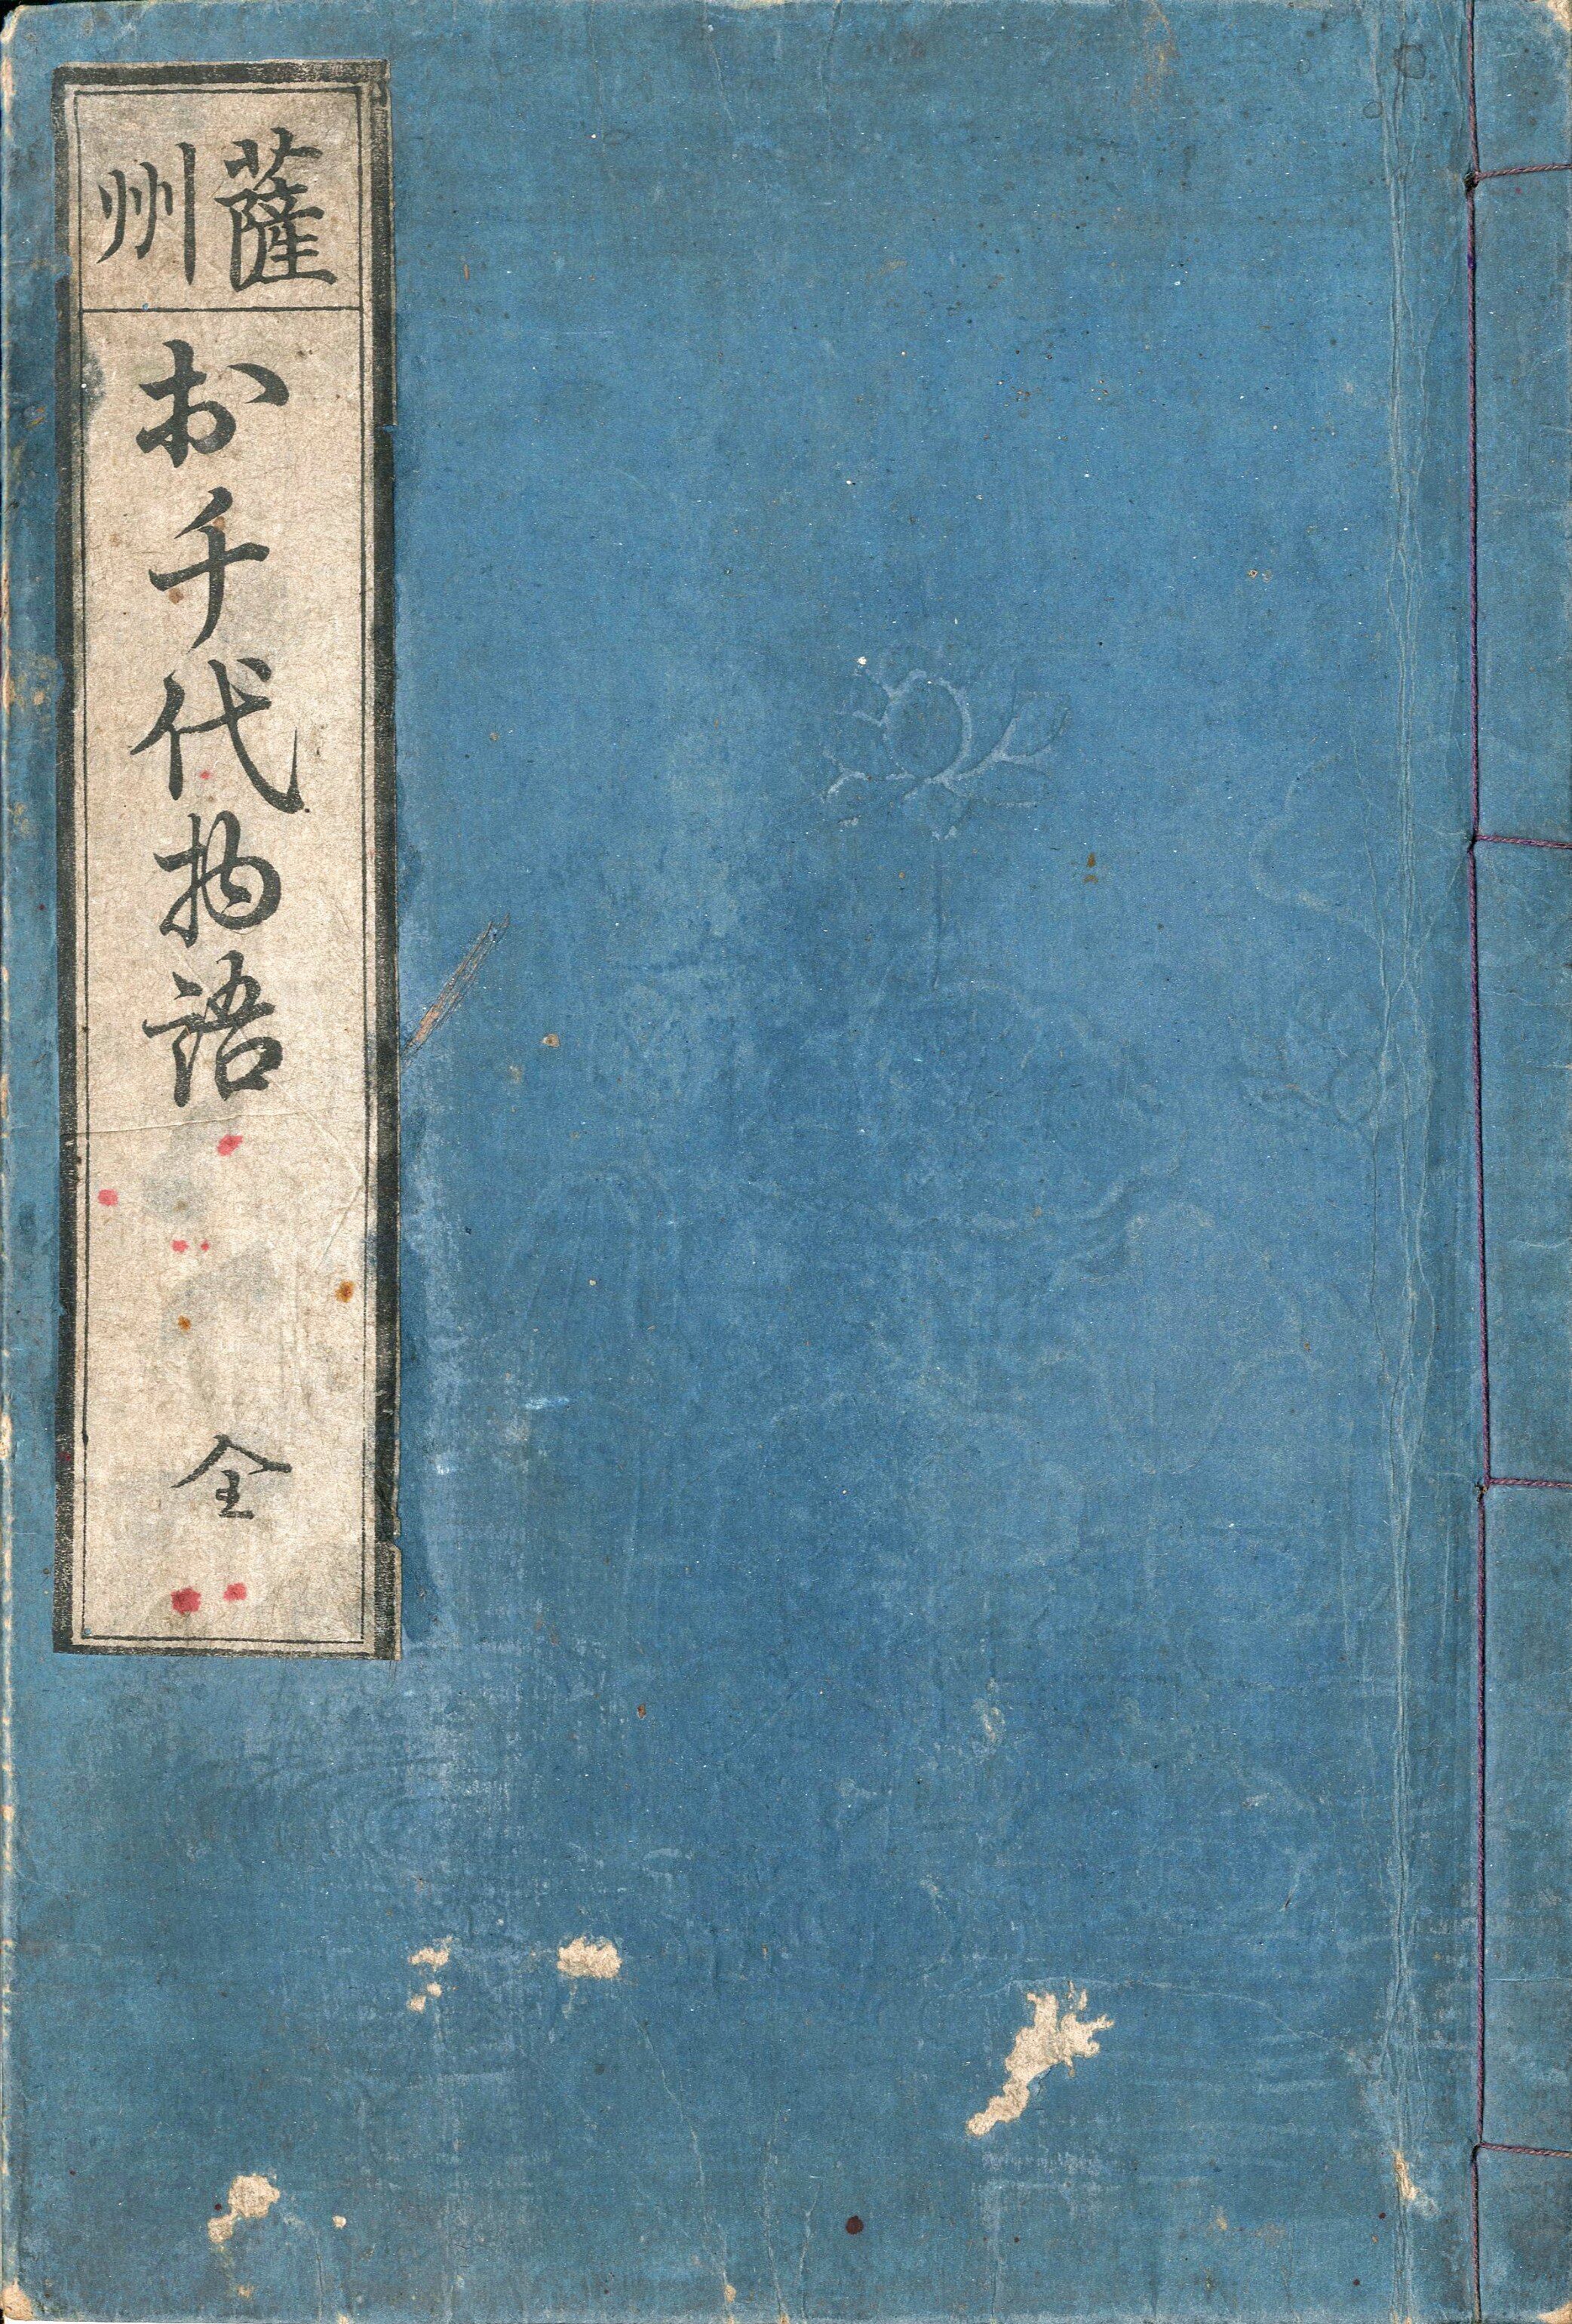 薩州
お千代物語
全